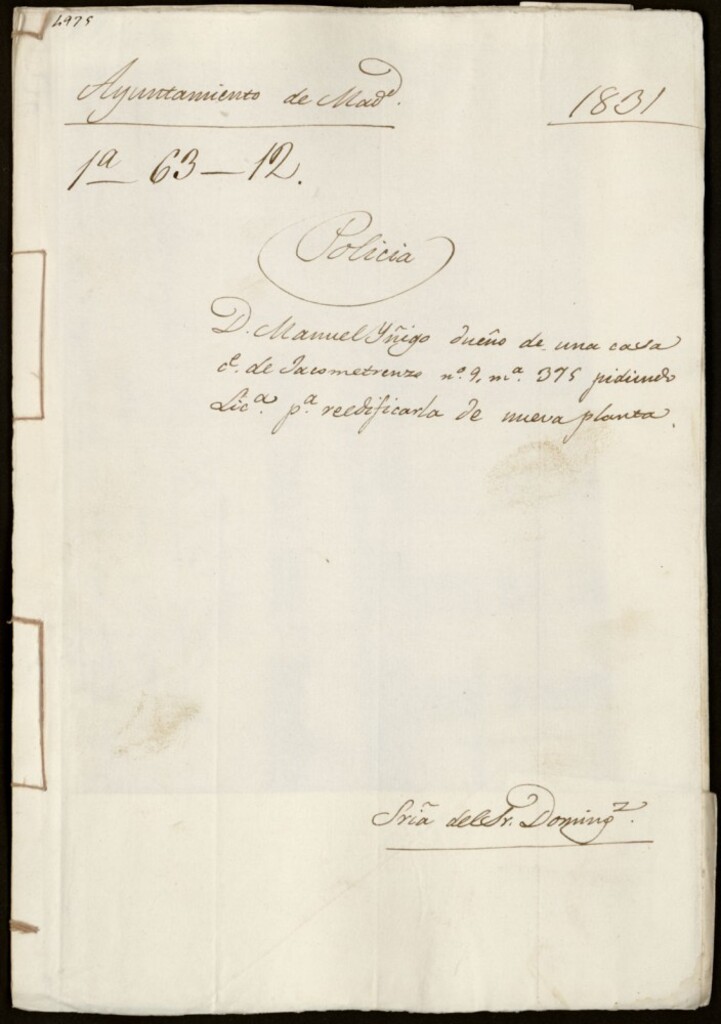 4975
Ayuntamiento de Madᵈ. 1831
1ª 63-12.
Policia
D. Manuel Yñigo dueño de una casa
cᵉ. de Jacometrenzo nº. 9, mª. 375 pidiendo
Licª. pª reedificarla de nueva planta.
Sriã del Sr. Domingᶻ.